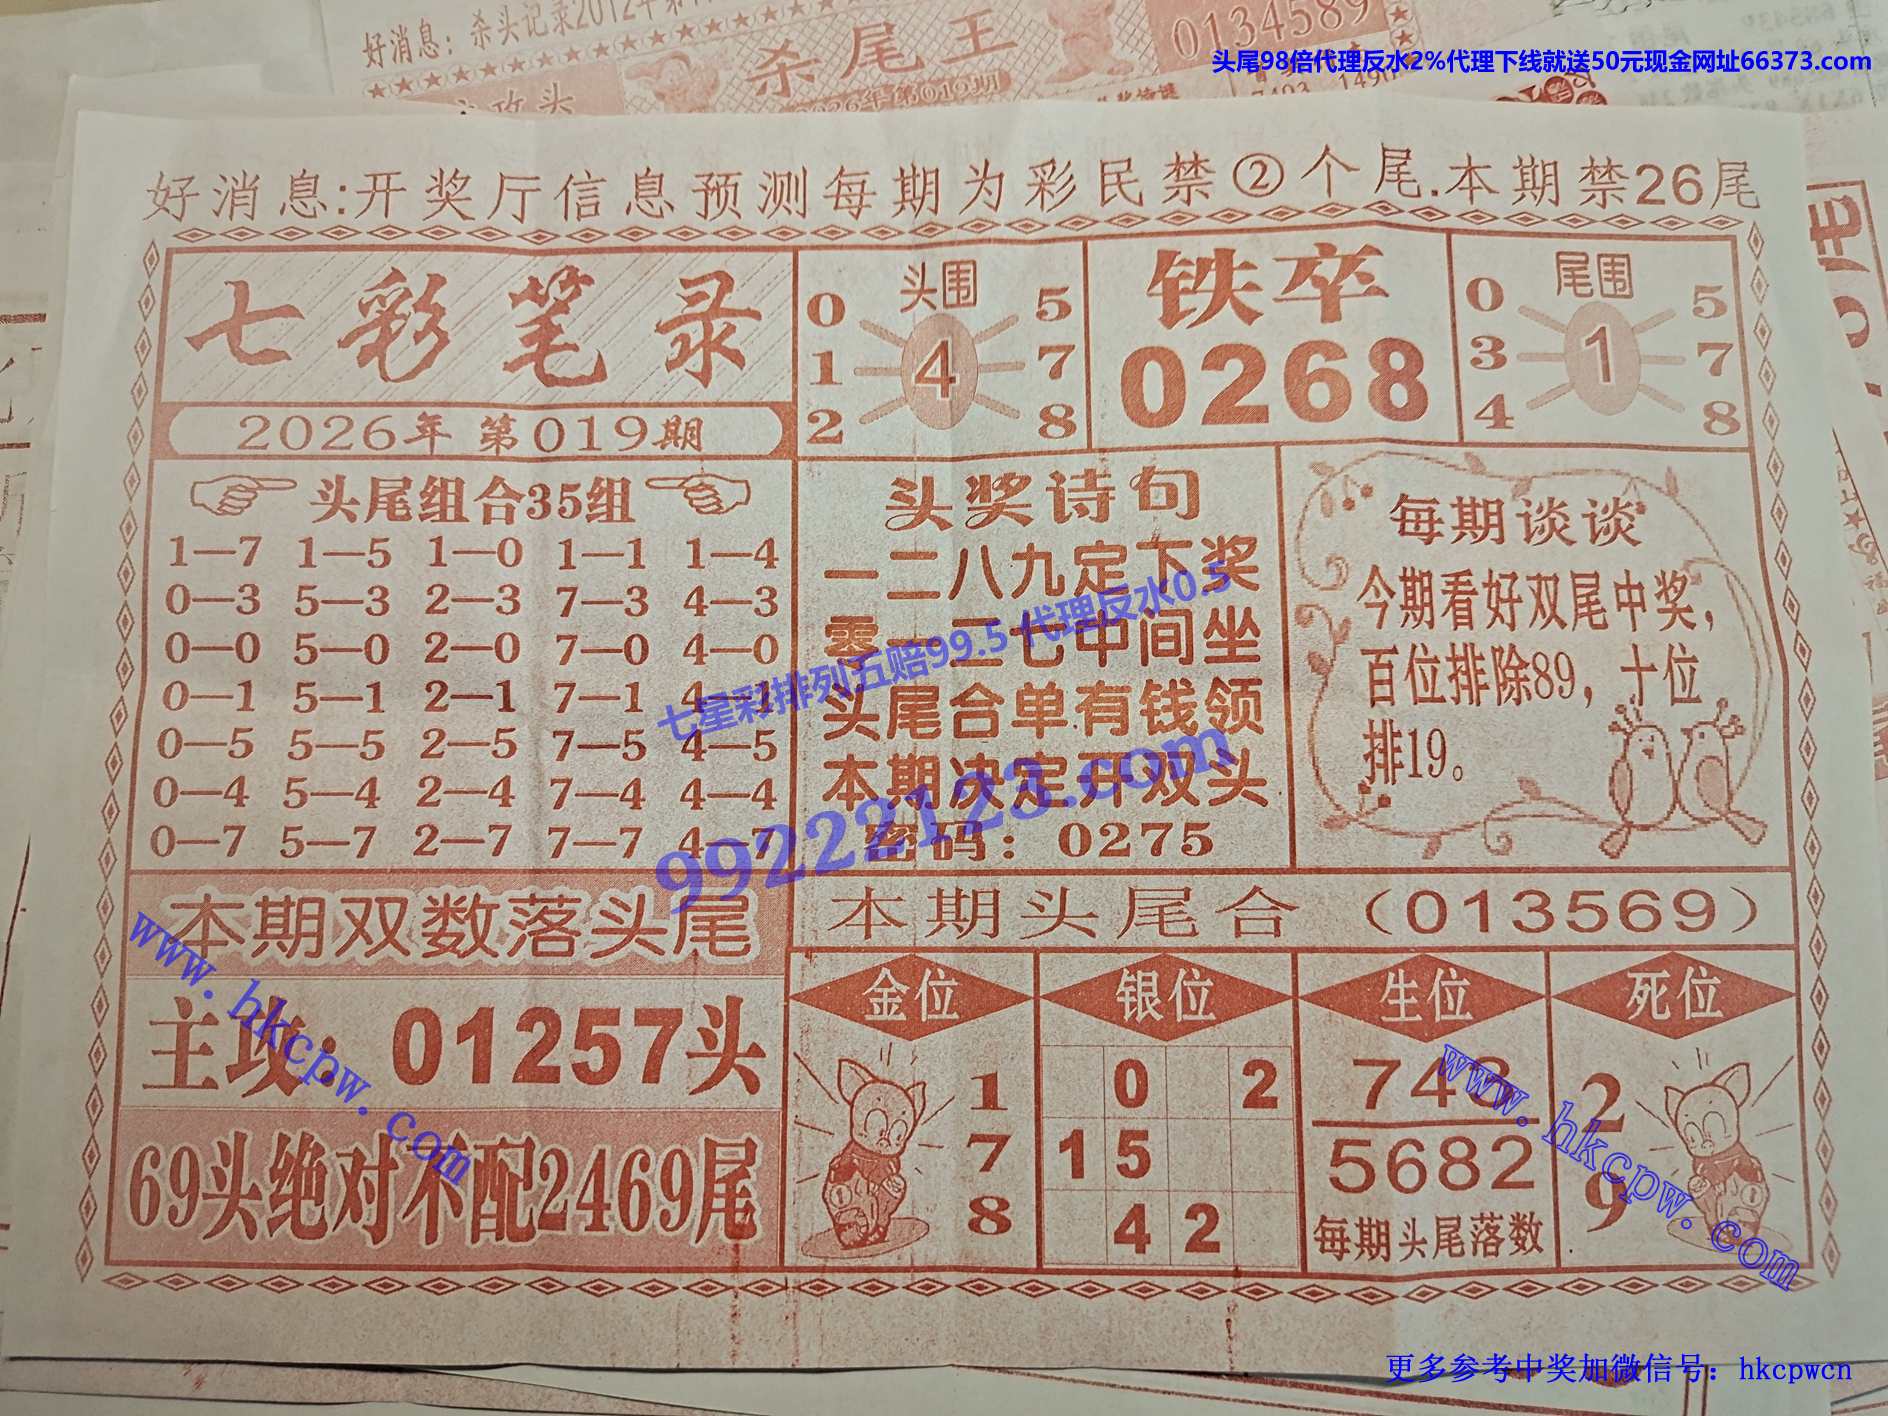 好消息：杀头记录2012年第
杀尾王
2026年第019期
0134589
头尾98倍代理反水2%代理下线就送50元现金网址66373.com
好消息:开奖厅信息预测每期为彩民禁②个尾.本期禁26尾
七彩笔录
2026年 第019期
头围
0 5
1 4 7
2 8
铁卒
0268
尾围
0 5
3 1 7
4 8
头尾组合35组
1—7 1—5 1—0 1—1 1—4
0—3 5—3 2—3 7—3 4—3
0—0 5—0 2—0 7—0 4—0
0—1 5—1 2—1 7—1 4—1
0—5 5—5 2—5 7—5 4—5
0—4 5—4 2—4 7—4 4—4
0—7 5—7 2—7 7—7 4—7
头奖诗句
一二八九定下奖
零一二七中间坐
头尾合单有钱领
本期决定开双头
密码：0275
每期谈谈
今期看好双尾中奖，
百位排除89，十位
排19。
七星彩排列五赔99.5 代理反水0.5
99222123.com
本期双数落头尾
主攻：01257头
69头绝对不配2469尾
本期头尾合（013569）
金位
1
7
8
银位
0 2
1 5
4 2
生位
743
5682
每期头尾落数
死位
2
9
www.hkcpw.com
www.hkcpw.com
更多参考中奖加微信号：hkcpwcn